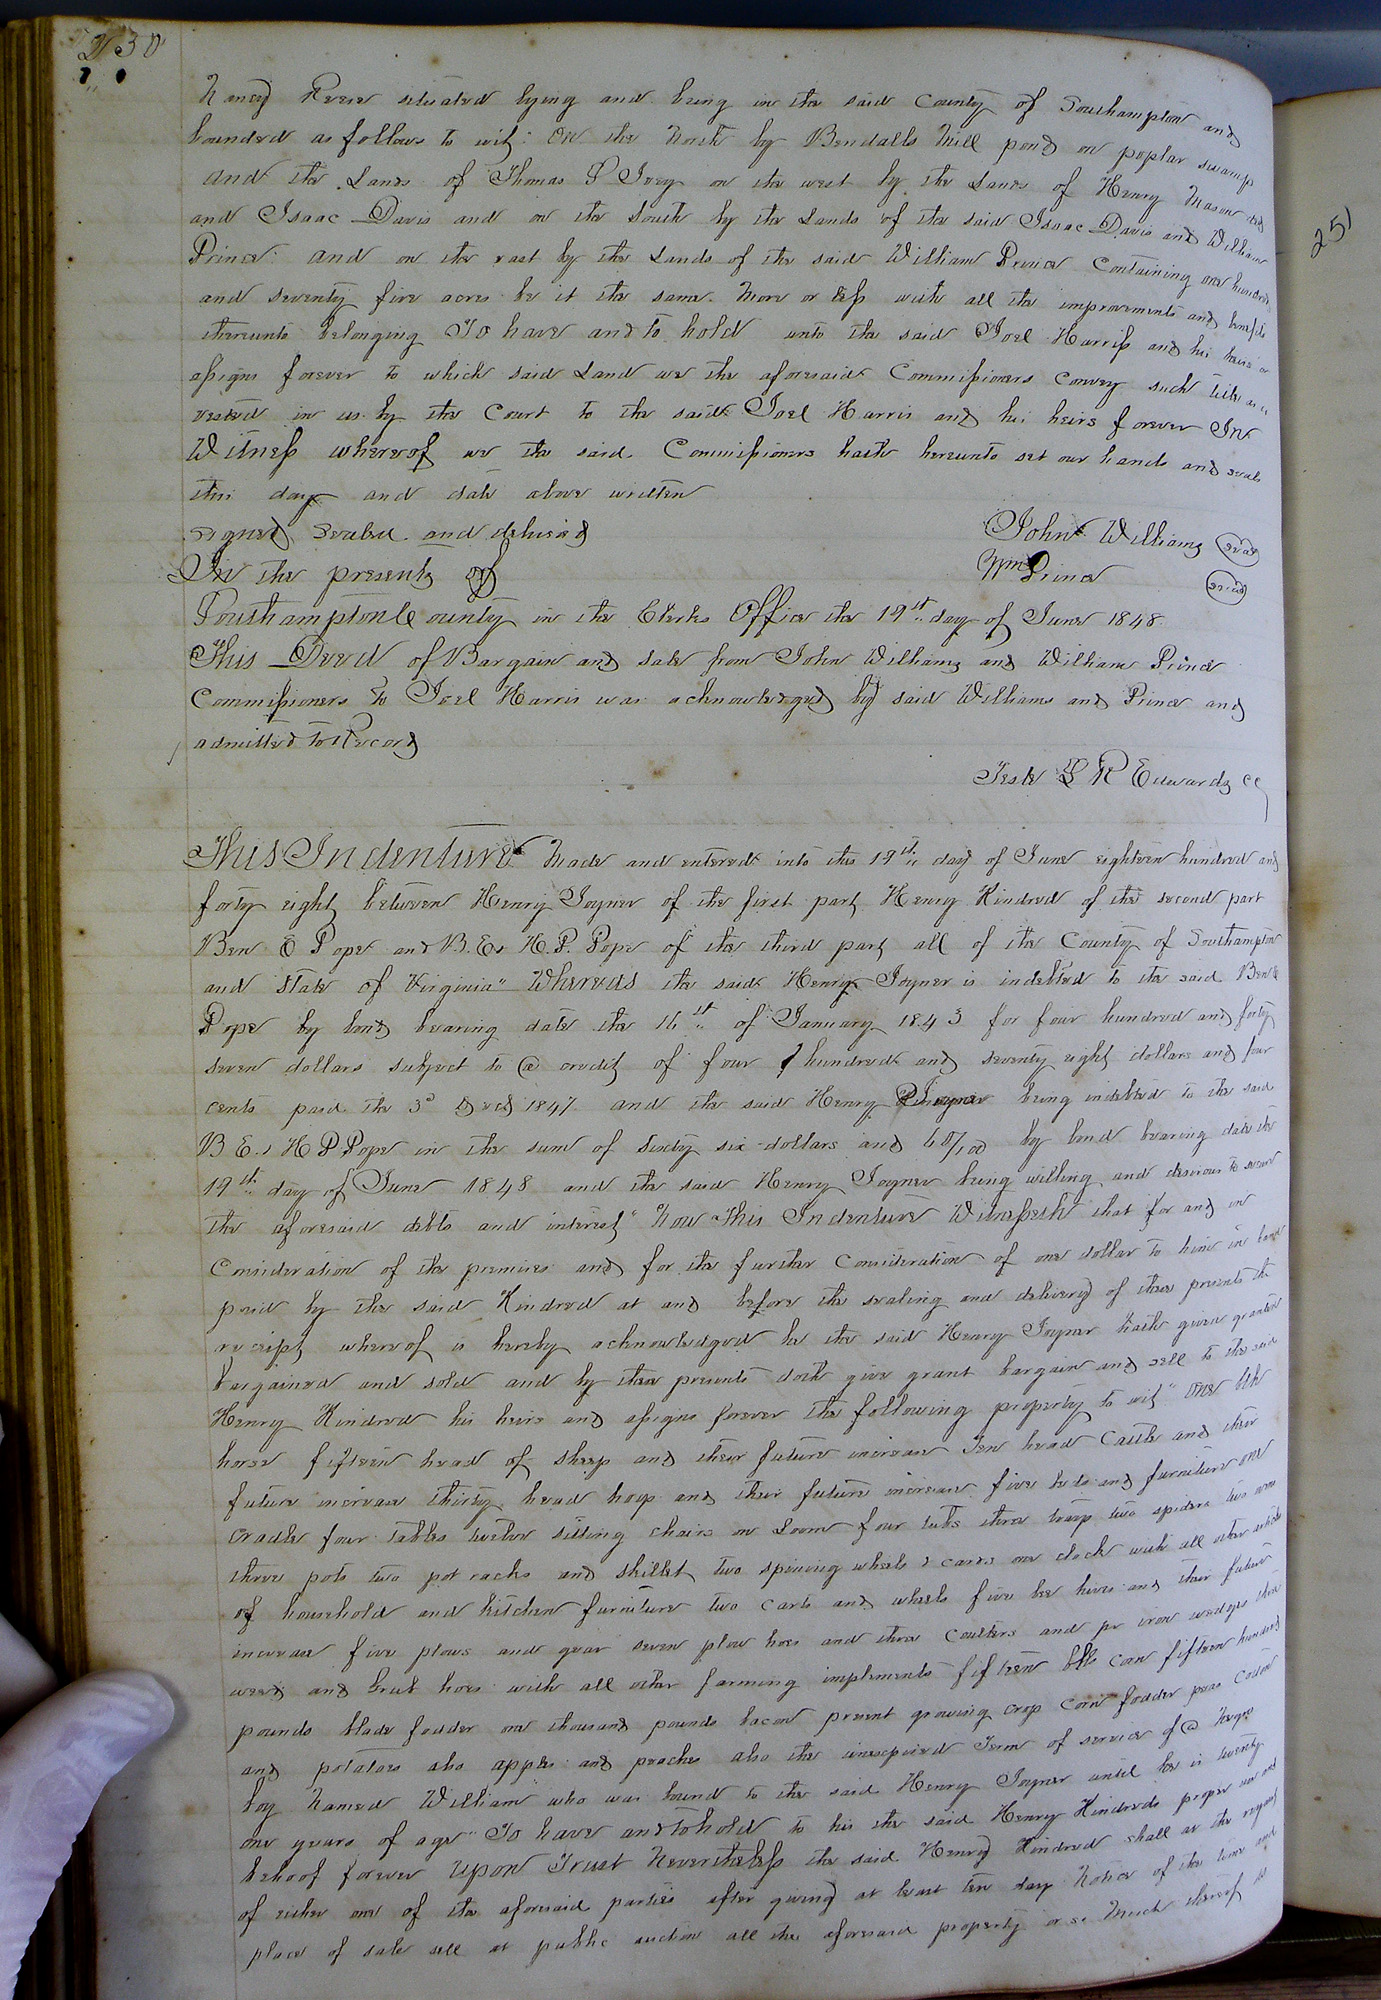 230
Nancy situated lying and being in the said County of Southampton and
bounded as follows to wit: On the North by Bendalls Mill pond on poplar swamp
and the Lands of Thomas P Ivey on the west by the Lands of Henry Mason
and Isaac Davis and on the South by the Lands of the said Isaac Davis and William
Prince and on the east by the Lands of the said William Prince Containing one hundred
and seventy five acres be it the same More or less with all the improvements and benefits
thereunto belonging To have and to hold unto the said Joel Harris and his heirs or
assigns forever to which said Land we the aforesaid Commissioners convey such title as is
vested in us by the Court to the said Joel Harris and his heirs forever In
Witness whereof we the said Commissioners hath hereunto set our hands and seals
this day and date above written
signed Sealed and delivered
In the presents of
John Williams seal
Wm Prince seal
Southampton County in the Clerks Office the 19th day of June 1848
This Deed of Bargain and sale from John Williams and William Prince
Commissioners to Joel Harris was acknowledged by said Williams and Prince and
admitted to Record
Teste L R Edwards cc
This Indenture Made and entered into this 19th day of June eighteen hundred and
forty eight between Henry Joyner of the first part Henry Kindred of the second part
Ben E Pope and B. E & H. P. Pope of the third part all of the County of Southampton
and State of Virginia" Whereas the said Henry Joyner is indebted to the said Ben E
Pope by bond bearing date the 16th of January 1843 for four hundred and forty
seven dollars subject to @ credit of four hundred and seventy eight dollars and four
cents paid the 3d Decr 1847 and the said Henry Joyner being indebted to the said
B E & H P Pope in the sum of Sixty six dollars and 60/100 by bond bearing date the
19th day of June 1848 and the said Henry Joyner being willing and desirous to secure
the aforesaid debts and interest" Now This Indenture Witnesseth that for and in
Consideration of the premises and for the further Consideration of one dollar to him in hand
paid by the said Kindred at and before the sealing and delivery of these presents the
receipt whereof is hereby acknowledged he the said Henry Joyner hath given granted
bargained and sold and by these presents doth give grant bargain and sell to the said
Henry Kindred his heirs and assigns forever the following property to wit" One blk
horse fifteen head of sheep and their future increase Ten head Cattle and their
future increase thirty head hogs and their future increase five beds and furniture one
cradle four tables twelve sitting chairs on Loom four tubs three trays two spiders two ovens
three pots two pot racks and skillet two spinning wheels & cards one clock with all other articles
of household and kitchen furniture two carts and wheels five bee hives and their future
increase five plows and gear seven plow hoes and three Coulters and pr iron wedges three
weed and grub hoes with all other farming implements fifteen bbls corn fifteen hundred
pounds blade fodder one thousand pounds bacon present growing crop Corn fodder peas Cotton
and potatoes also apples and peaches also the unexpired Term of service of @ Negro
boy Named William who was bound to the said Henry Joyner until he is twenty
one years of age" To have and to hold to his the said Henry Kindreds proper use and
behoof forever Upon Trust Nevertheless the said Henry Kindred shall at the request
of either one of the aforesaid parties after giving at least ten day Notice of the time and
place of sale sell at public auction all the aforesaid property or so Much thereof
251